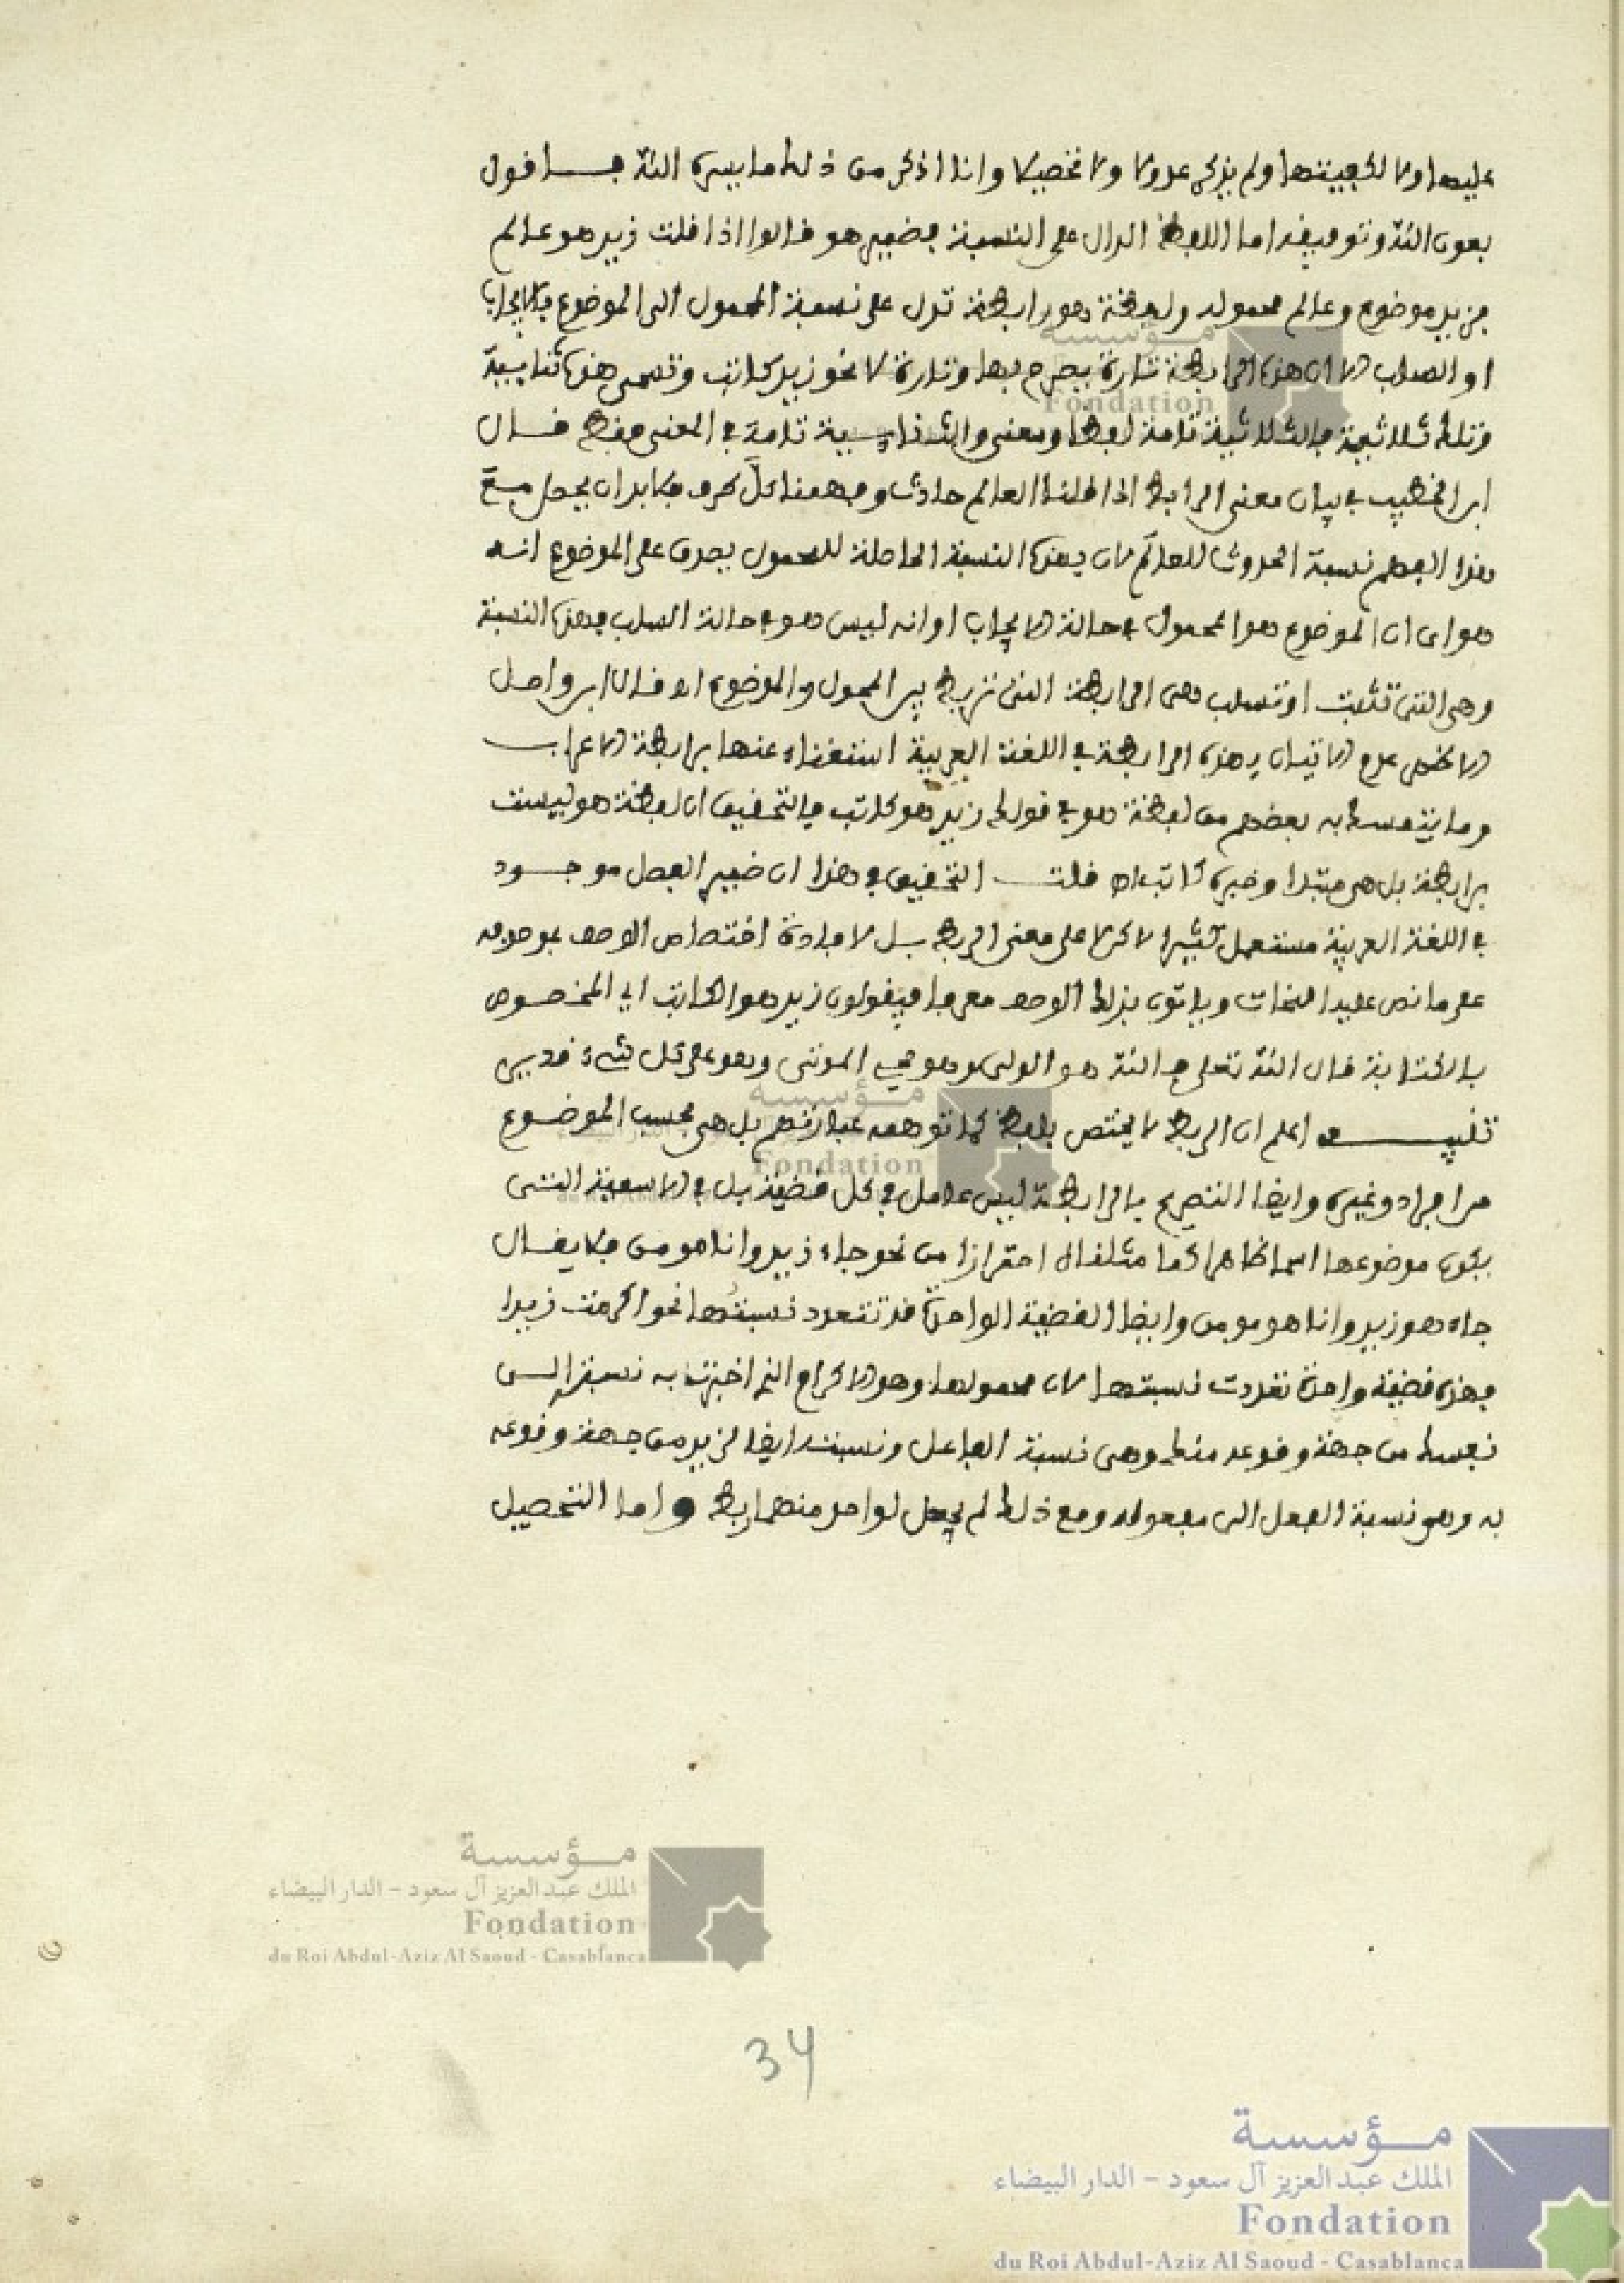 عليها ولا لكيفيتها ولم يذكر عدولا ولا تحصيلا وانا اذكر من ذلك ما يسره الله فـاقول
بعون الله وتوفيقه اما اللفظ الدال على النسبة فضمير هو قالوا اذا قلت زيد هو عالم
فزيد موضوع وعالم محمول ولفظة هو رابطة تدل على نسبة المحمول الى الموضوع بالايجاب
او السلب الا ان هذه الرابطة تارة يصرح بها وتارة لا نحو زيد كاتب وتسمى هذه ثنايية
وتلك ثلاثية فالثلاثية تامة لفظا ومعنى والثنايية تامة في المعنى فقط قـال
ابن الخطيب في بيان معنى الرابط اذا قلنا العالم حادث وفهمنا كل طرف فلا بد ان يحصل مع
هذا الفهم نسبة الحدوث للعالم لان بهذه النسبة الحاصلة للمحمول يصدق على الموضوع انه
هو اى ان الموضوع هو المحمول في حالة الايجاب او انه ليس هو في حالة السلب فهذه النسبة
وهى التى تثبت او تسلب وهى الرابطة التى تربط بين المحمول والموضوع اه قال ابن واصل
الاخص عدم الاتيان بهذه الرابطة في اللغة العربية استغناء عنها برابطة الاعراب
وما يتوسط به بعضهم من لفظة هو في قولك زيد هو كاتب فالتحقيق ان لفظة هو ليست
برابطة بل هى مبتدا وخبره كاتب اه قلت التحقيق في هذا ان ضمير الفصل موجـود
في اللغة العربية مستعمل كثيرا لاكن لا على معنى الربط بـل لافادة اختصاص الوصف بموصوفه
على ما نص عليه النحات وياتون بذلك الوصف معرفا فيقولون زيد هو الكاتب اي المخصوص
بالكتابة قال الله تعلى فالله هو الولى وهو يحيي الموتى وهو على كل شىء قدير
تنبيـــه اعلم ان الربط لا يختص بلفظ كما توهمه عبارتهم بل هى بحسب الموضوع
من افراد وغيره وايضا التصريح بالرابطة ليس عامل في كل قضية بل في الاسمية التى
يكون موضوعها اسما ظاهرا كما مثلنا احترازا من نحو جاء زيد وانا مومن فلا يقـال
جاء هو زيد وانا هو مومن وايضا القضية الواحدة قد تتعدد نسبتها نحو اكرمت زيدا
فهذه قضية واحدة تعددت نسبتها لان محمولها وهو الاكرام الذي اخبرت به نسبته الى
نفسك من جهة وقوعه منك وهى نسبة الفاعل ونسبته ايضا لزيد من جهة وقوعه
به وهو نسبة الفعل الى مفعوله ومع ذلك لم يجعل لواحد منهما رابط واما التحصيل
34
مؤسسة
الملك عبد العزيز آل سعود - الدار البيضاء
Fondation
du Roi Abdul-Aziz Al Saoud - Casablanca
مؤسسة
الملك عبد العزيز آل سعود - الدار البيضاء
Fondation
du Roi Abdul-Aziz Al Saoud - Casablanca